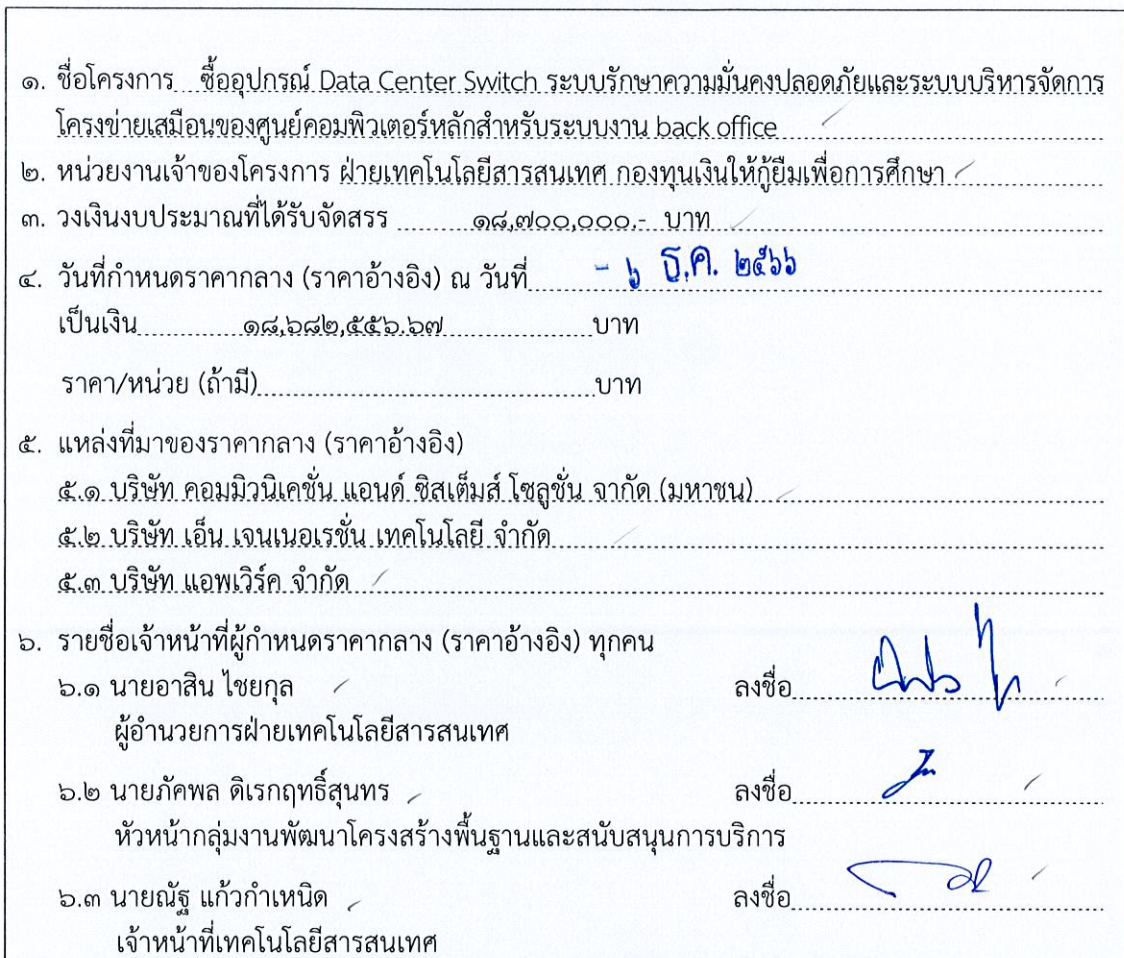 ๑. ชื่อโครงการ ซื้ออุปกรณ์ Data Center Switch ระบบรักษาความมั่นคงปลอดภัยและระบบบริหารจัดการ
โครงข่ายเสมือนของศูนย์คอมพิวเตอร์หลักสำหรับระบบงาน back office
๒. หน่วยงานเจ้าของโครงการ ฝ่ายเทคโนโลยีสารสนเทศ กองทุนเงินให้กู้ยืมเพื่อการศึกษา
๓. วงเงินงบประมาณที่ได้รับจัดสรร ๑๘,๗๐๐,๐๐๐.- บาท
๔. วันที่กำหนดราคากลาง (ราคาอ้างอิง) ณ วันที่ - ๖ ธ.ค. ๒๕๖๖
เป็นเงิน ๑๘,๖๘๒,๕๕๖.๖๗ บาท
ราคา/หน่วย (ถ้ามี) บาท
๕. แหล่งที่มาของราคากลาง (ราคาอ้างอิง)
๕.๑ บริษัท คอมมิวนิเคชั่น แอนด์ ซิสเต็มส์ โซลูชั่น จำกัด (มหาชน)
๕.๒ บริษัท เอ็น เจนเนอเรชั่น เทคโนโลยี จำกัด
๕.๓ บริษัท แอพเวิร์ค จำกัด
๖. รายชื่อเจ้าหน้าที่ผู้กำหนดราคากลาง (ราคาอ้างอิง) ทุกคน
๖.๑ นายอาสิน ไชยกุล ลงชื่อ
ผู้อำนวยการฝ่ายเทคโนโลยีสารสนเทศ
๖.๒ นายภัคพล ดิเรกฤทธิ์สุนทร ลงชื่อ
หัวหน้ากลุ่มงานพัฒนาโครงสร้างพื้นฐานและสนับสนุนการบริการ
๖.๓ นายณัฐ แก้วกำเหนิด ลงชื่อ
เจ้าหน้าที่เทคโนโลยีสารสนเทศ